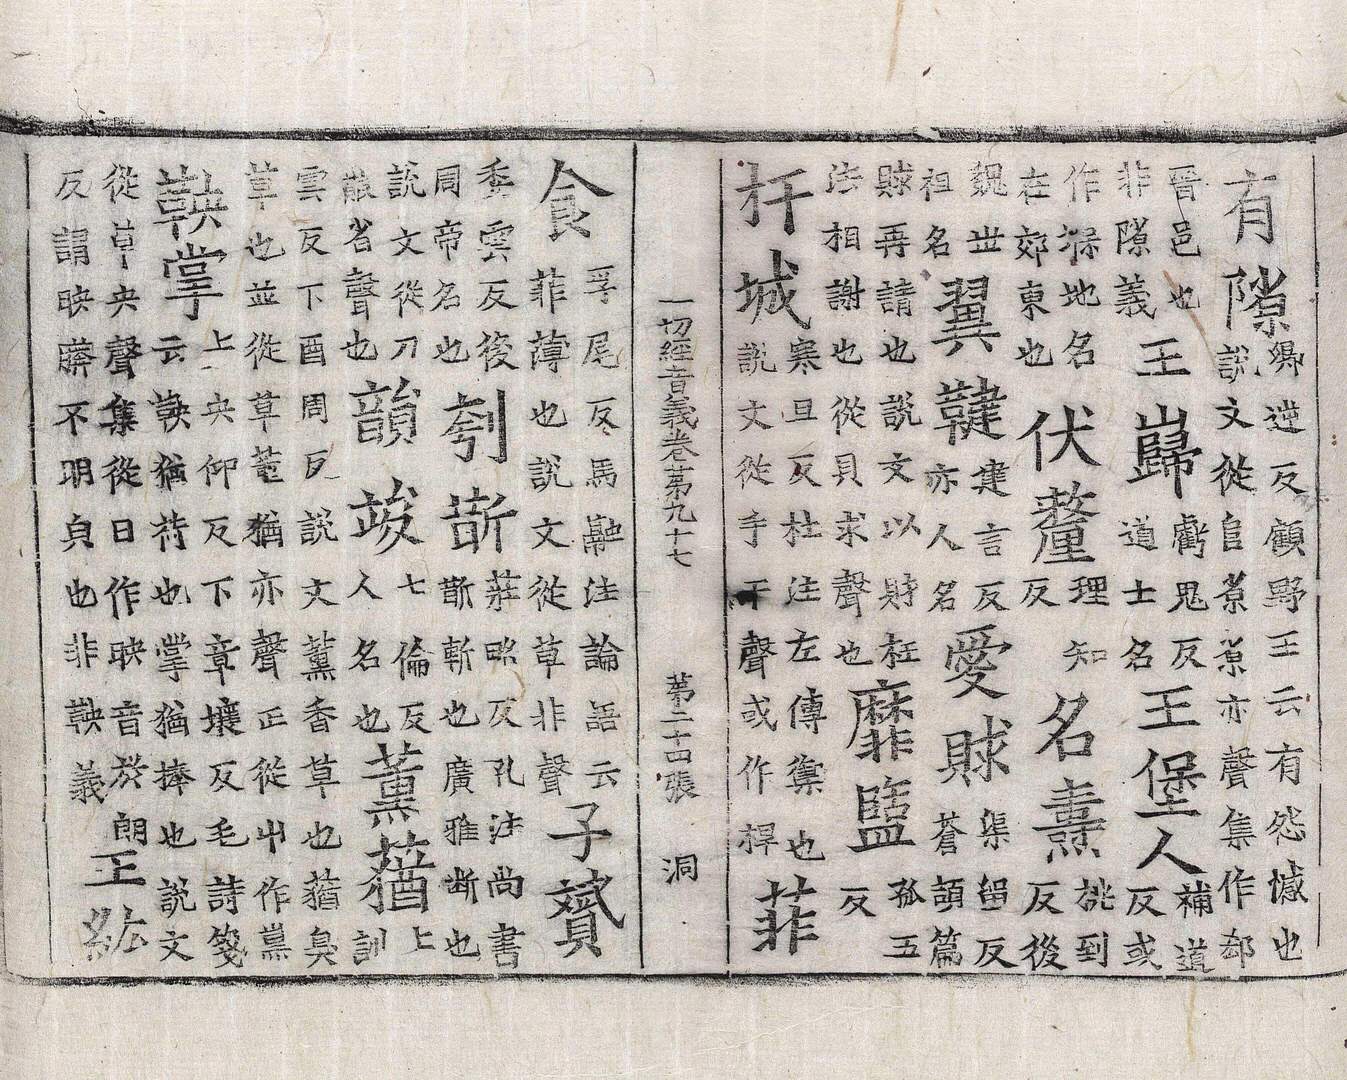 有隙鄉逆反顧野王云有怨憾也
說文從𨸏㡭㡭亦聲集作郄
晉邑也
非隙義王巋道士名虧鬼反王堡人補道反或
作㙅地名
在郊東也伏鼇理知反名熹桃到反後
魏世
祖名翼鞬建言反亦人名愛賕渠留反蒼頡篇
賕再請也說文以財枉
法相謝也從貝求聲也靡盬孤五反
扞城寒旦反杜注左傳禦也
說文從手干聲或作捍菲
一切經音義卷第九十七 第二十四張 洞
食孚尾反馬融注論語云
菲薄也說文從草非聲子贇
委雲反後
周帝名也刳斮莊略反孔注尚書
斮斬也廣雅斷也
說文從刀
䉈省聲也韻竣七倫反人名也薰蕕上訓
雲反下酉周反說文薰香草也蕕臭
草也並從草蕕猶亦聲正從屮作薰
鞅掌上央仰反下章壤反毛詩箋
云鞅猶荷也掌猶捧也說文
從草央聲集從日作映音於朗
反謂映𦿆不明貞也非鞅義王紘